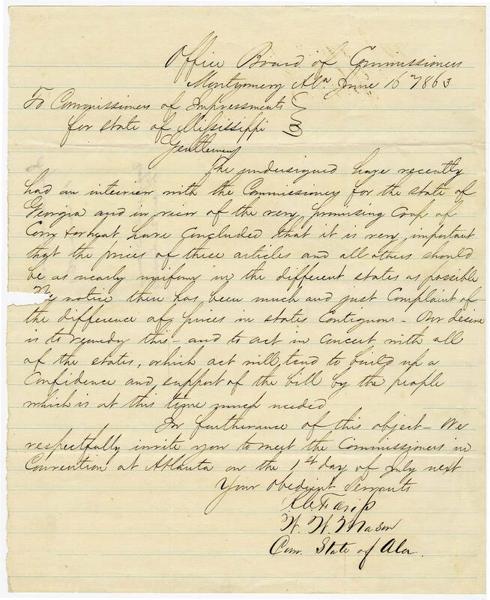 Office Board of Commissioners
Montgomery Ala June 16th 1863
To Commissioners of Impressments
for State of Mississippi
Gentlemen
The undersigned have recently
had an interview with the Commissioners for the State of
Georgia and in view of the very promising Crop of
Corn & wheat have Concluded that it is very important
that the prices of these articles and all others should
be as nearly uniform in the different states as possible
We notice there has been much and just Complaint of
the difference of prices in states Contiguous - Our desire
is to remedy this - and to act in Concert with all
of the states, which act will tend to build up a
Confidence and support of the bill by the people
which is at this time much needed
In furtherance of this object - We
respectfully invite you to meet the Commissioners in
Convention at Atlanta on the 1st day of July next
Your Obedient Servants
W. W. Mason
Com. State of Ala.